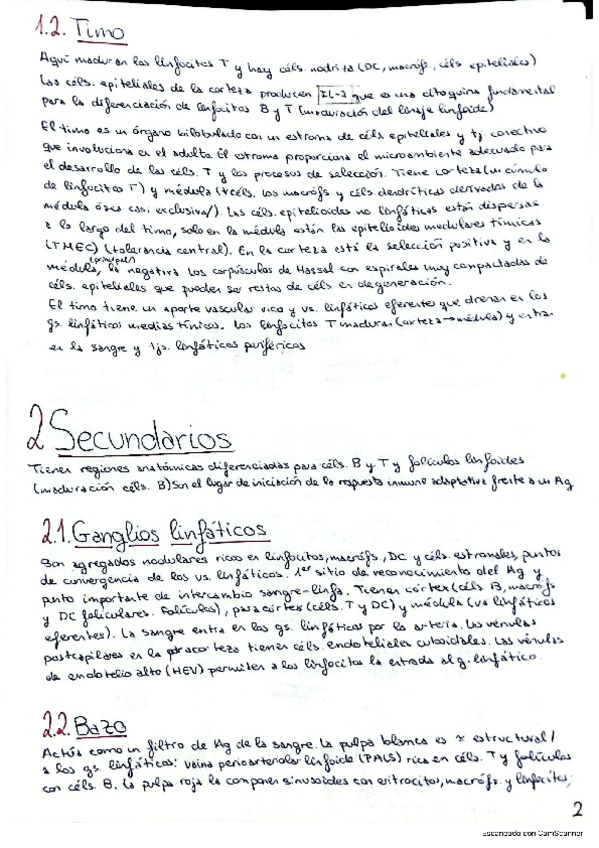 1.2. Timo
Aquí maduran los linfocitos T y hay céls. nodriza (DC, macróf., céls epiteliales)
Las céls. epiteliales de la corteza producen IL-7 que es una citoquina fundamental
para la diferenciación de linfocitos B y T (maduración del linaje linfoide)
El timo es un órgano bilobulado con un estroma de céls epiteliales y tj. conectivo
que involuciona en el adulto. El estroma proporciona el microambiente adecuado para
el desarrollo de las céls. T y los procesos de selección. Tiene corteza (un cúmulo
de linfocitos T) y médula (↓céls. los macrófs y céls. dendríticas derivadas de la
médula ósea casi exclusiva/). Las céls. epitelioides no linfáticas están dispersas
a lo largo del timo, solo en la médula están las epitelioides medulares tímicas
(TMEC) (tolerancia central). En la corteza está la selección positiva y en la
médula, (principal/) la negativa. Los corpúsculos de Hassal son espirales muy compactadas de
céls. epiteliales que pueden ser restos de céls en degeneración.
El timo tiene un aporte vascular rico y vs. linfáticos eferentes que drenan en los
gs. linfáticos mediastínicos. Los linfocitos T maduran (corteza → médula) y entran
en la sangre y tjs. linfáticos periféricos
2 Secundarios
Tienen regiones anatómicas diferenciadas para céls. B y T y folículos linfoides
(maduración céls. B) Son el lugar de iniciación de la respuesta inmune adaptativa frente a un Ag
2.1. Ganglios linfáticos
Son agregados nodulares ricos en linfocitos, macrófs, DC y céls. estromales, puntos
de convergencia de los vs. linfáticos. 1er sitio de reconocimiento del Ag y
punto importante de intercambio sangre-linfa. Tienen córtex (céls. B, macrófs
y DC foliculares. Folículos), paracórtex (céls. T y DC) y médula (vs linfáticos
eferentes). La sangre entra en los gs. linfáticos por la arteria. Las vénulas
postcapilares en la paracorteza tienen céls. endoteliales cuboidales. Las vénulas
de endotelio alto (HEV) permiten a los linfocitos la entrada al g. linfático.
2.2. Bazo
Actúa como un filtro de Ag de la sangre. La pulpa blanca es ≈ estructural/
a los gs. linfáticos: vaina periarteriolar linfoide (PALS) rica en céls. T y folículos
con céls. B. La pulpa roja la componen sinusoides con eritrocitos, macrófs. y linfocitos;
2
Escaneado con CamScanner